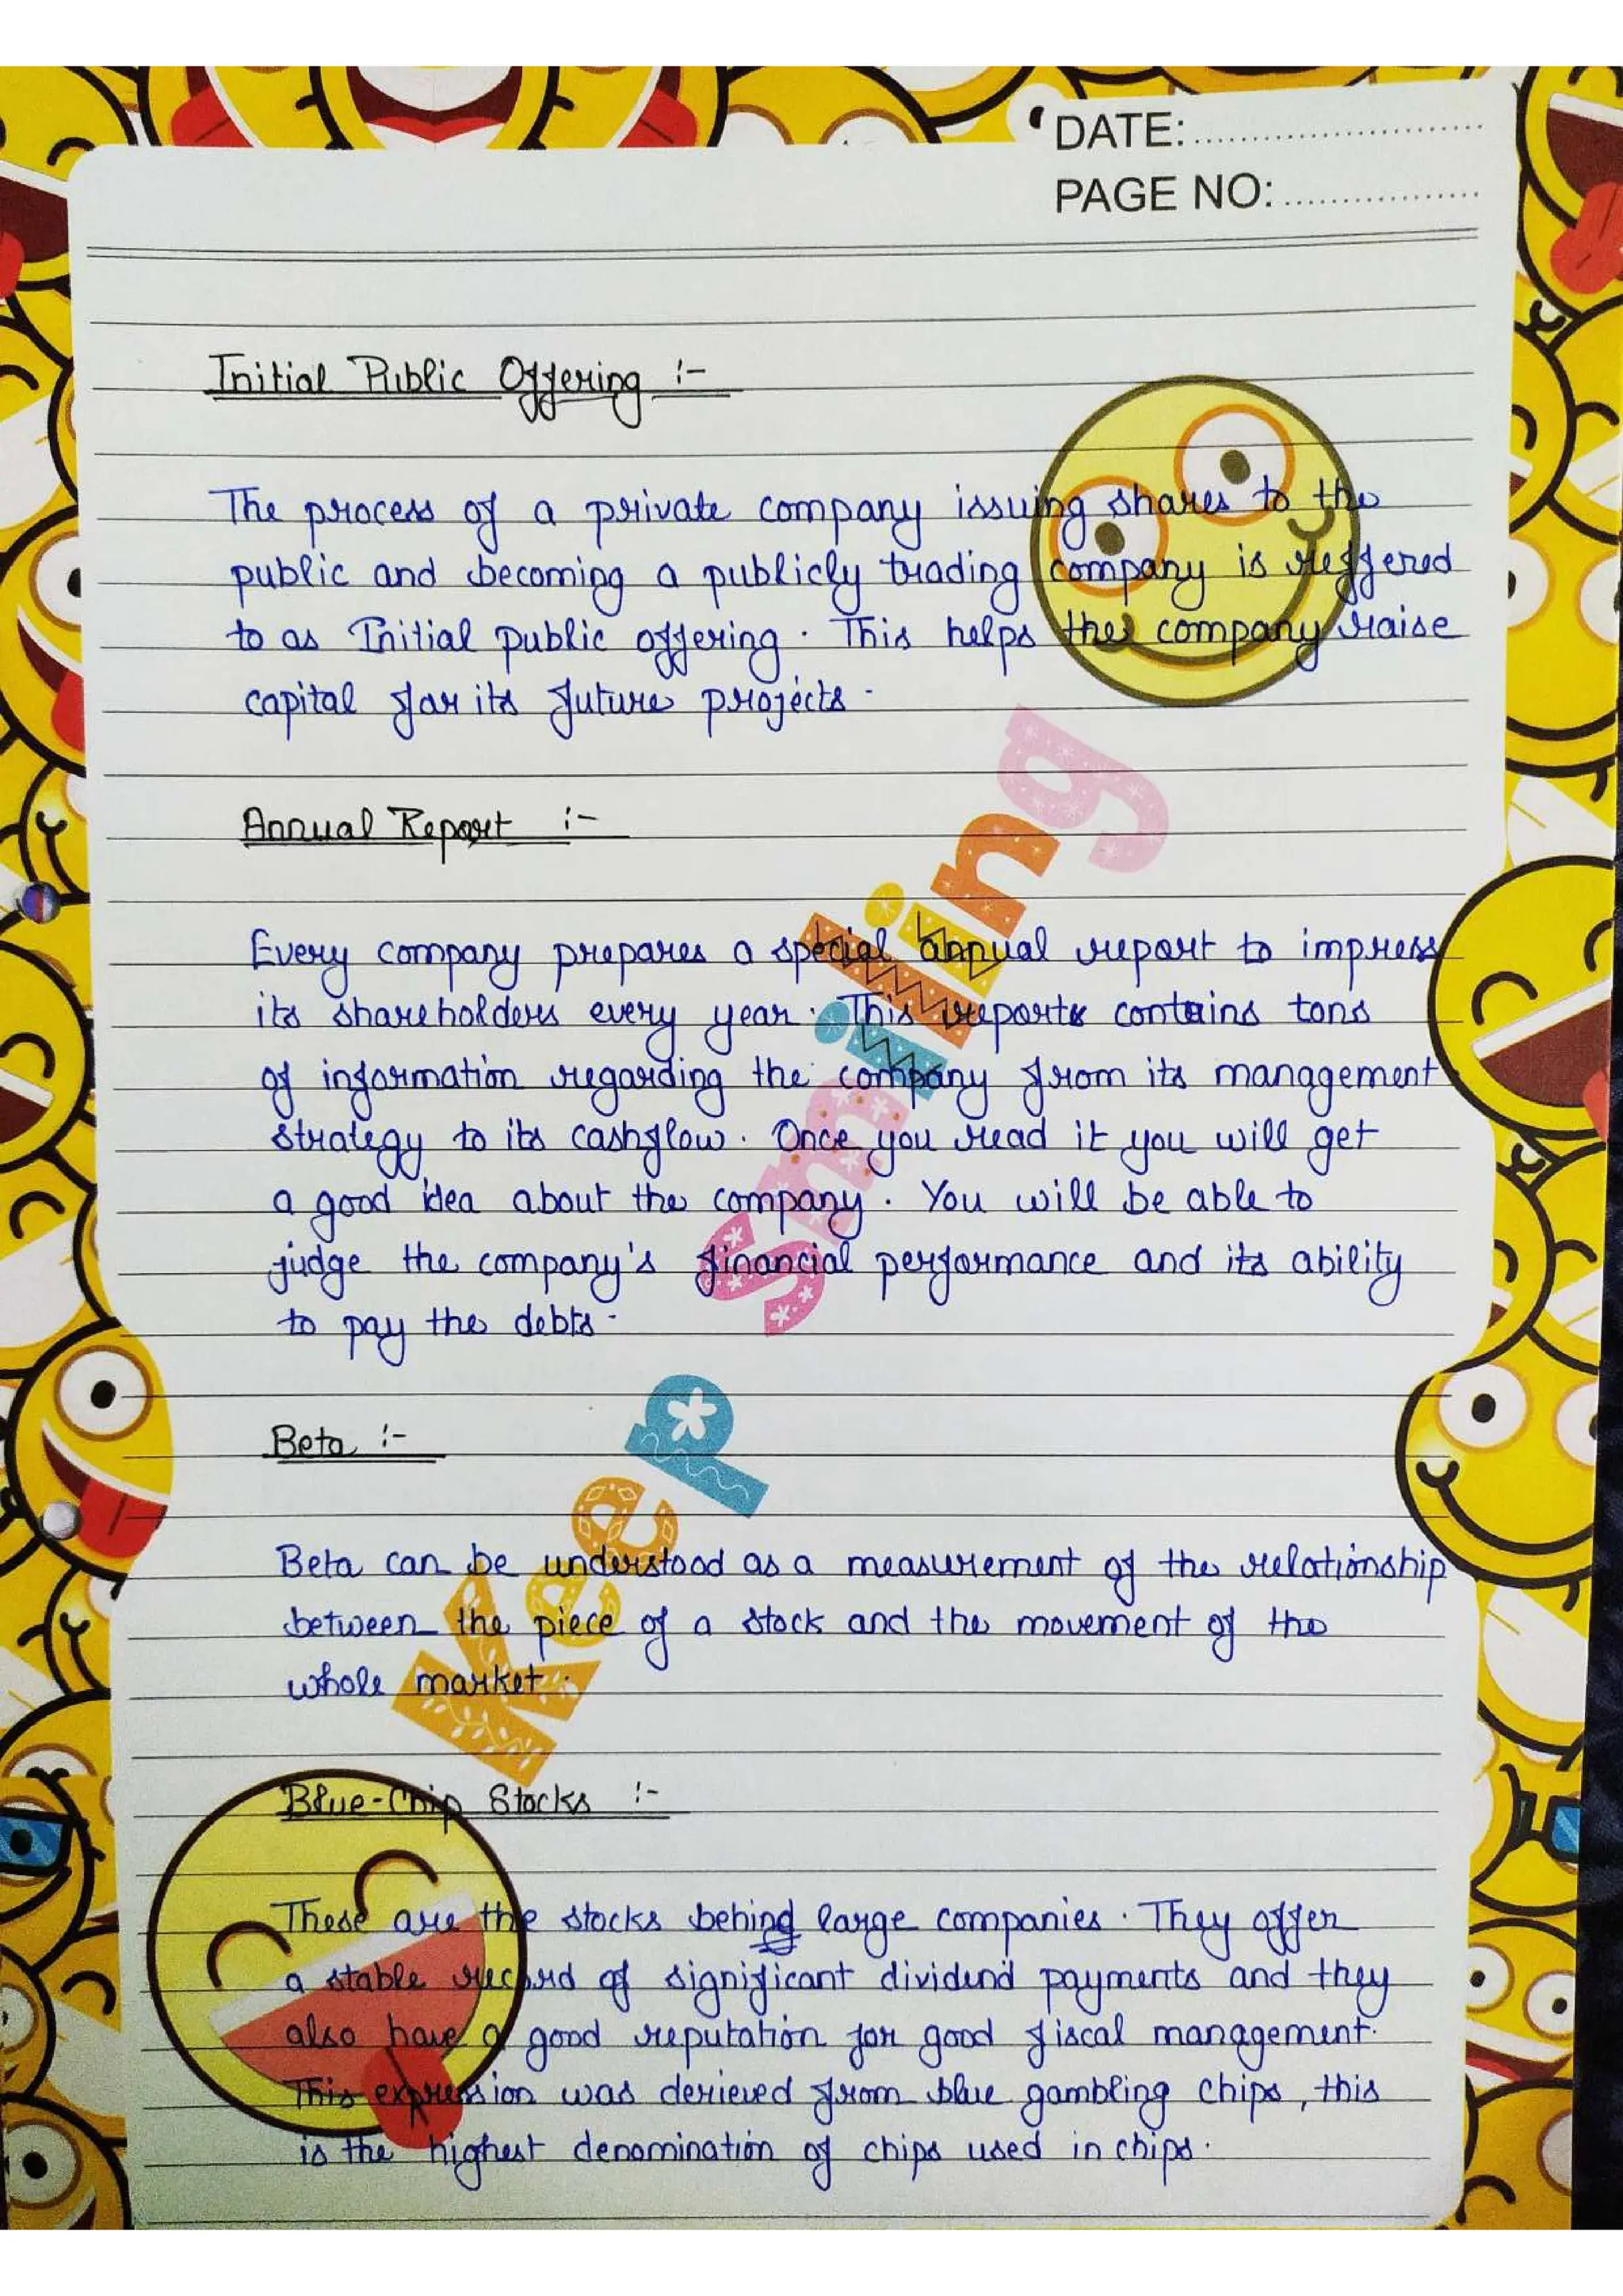 DATE:
PAGE NO:
Initial Public Offering :-
The process of a private company issuing shares to the
public and becoming a publicly trading company is reffered
to as Initial public offering. This helps the company raise
capital for its future projects.
Annual Report :-
Every company prepares a special annual report to impress
its shareholders every year. This reports contains tons
of information regarding the company from its management
strategy to its cashflow. Once you read it you will get
a good idea about the company. You will be able to
judge the company's financial performance and its ability
to pay the debts.
Beta :-
Beta can be understood as a measurement of the relationship
between the piece of a stock and the movement of the
whole market.
Blue-Chip Stocks :-
These are the stocks behind large companies. They offer
a stable record of significant dividend payments and they
also have a good reputation for good fiscal management.
This expression was derieved from blue gambling chips, this
is the highest denomination of chips used in chips.
Keep Smiling